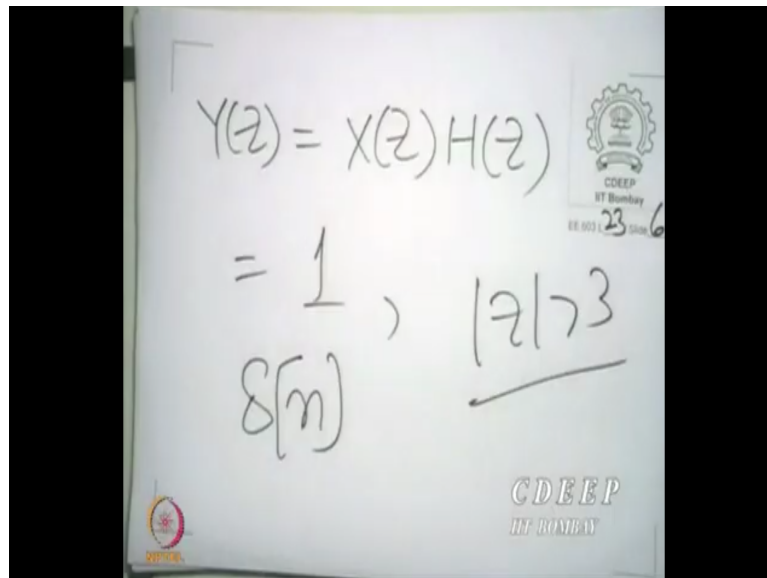 Y(z) = X(z) H(z)
CDEEP
IIT Bombay
EE 603 L 23 Slide 6
= 1 , |z| > 3
δ[n]
CDEEP
IIT BOMBAY
NPTEL